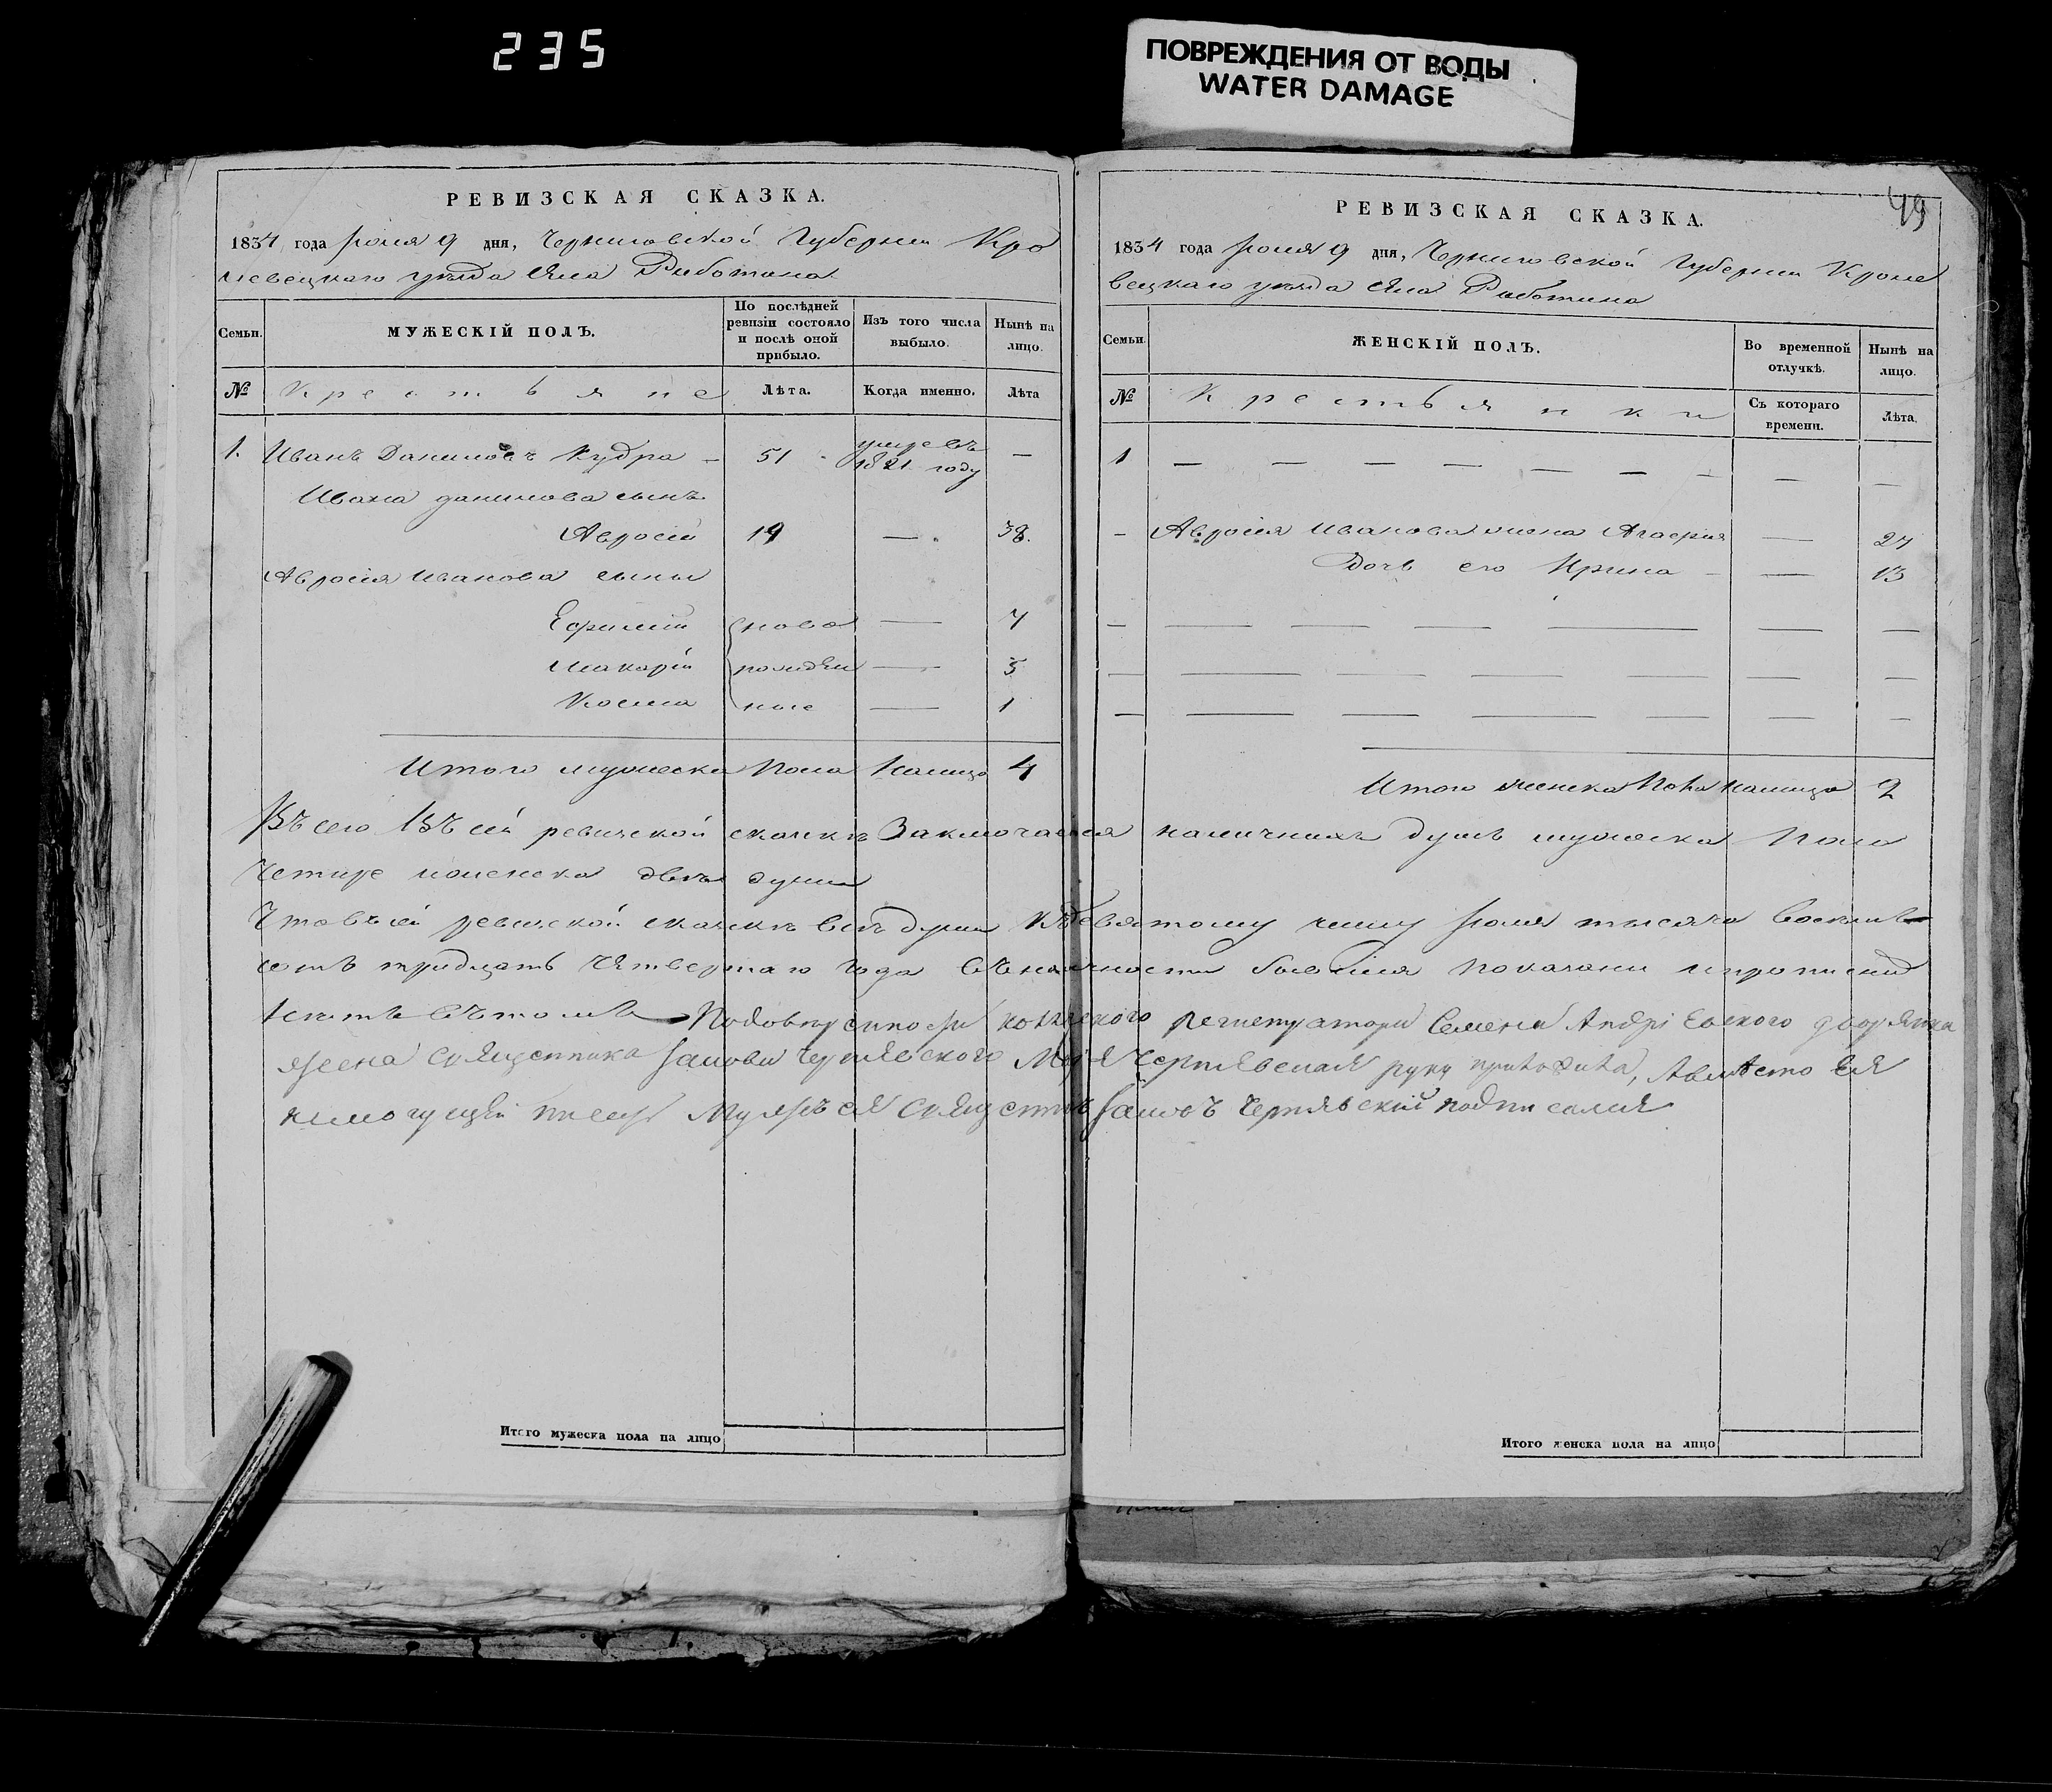 235
ПОВРЕЖДЕНИЯ ОТ ВОДЫ
WATER DAMAGE
49
РЕВИЗСКАЯ СКАЗКА.
1834 года Іюля 9 дня, Черниговской Губерніи Кро
левецкаго уѣзда Села Риботина
Семьи.
МУЖЕСКІЙ ПОЛЪ.
По послѣдней ревизіи состояло и послѣ оной прибыло.
Изъ того числа выбыло.
Нынѣ на лицо.
№
Крестьяне
Лѣта.
Когда именно.
Лѣта
1. Иванъ Даниловъ Кудра – 51 умре въ 1821 году —
Ивана данилова сынъ
Авросій 19 — 38.
Авросія Иванова сыны
Ефимій ново — 7
Макарій рожден — 5
Косма ные — 1
Итого мужеска Пола Налицо 4
РЕВИЗСКАЯ СКАЗКА.
1834 года Іюля 9 дня, Черниговской Губерніи Кроле
вецкаго уѣзда Села Риботина
Семьи.
ЖЕНСКІЙ ПОЛЪ.
Во временной отлучкѣ.
Нынѣ на лицо.
№
Крестьянки
Съ котораго времени.
Лѣта.
1 — — — — — — — — —
– Авросія Иванова жена Агафія — 27
Дочь его Ирина – — 13
Итого женска Пола налицо 2
Въсего Въ сей ревизской сказкѣ Заключается наличныхъ душъ мужеска Пола
Четыре иженска двѣ души
Что въ сей ревизской сказкѣ всѣ души къ девятому числу Іюля тысяча восемь
сотъ тридцать Четвертаго года въ наличности показани
Подоверенности Регистратора Семена Андріевского дворянка
жена Священника Іанова Чернявского Чернявская руку приложила, Авместо Ея
немогущей писать Мужъ ея Священникъ Іановъ Чернявскій подписался
Итого мужеска пола на лицо
Итого женска пола на лицо